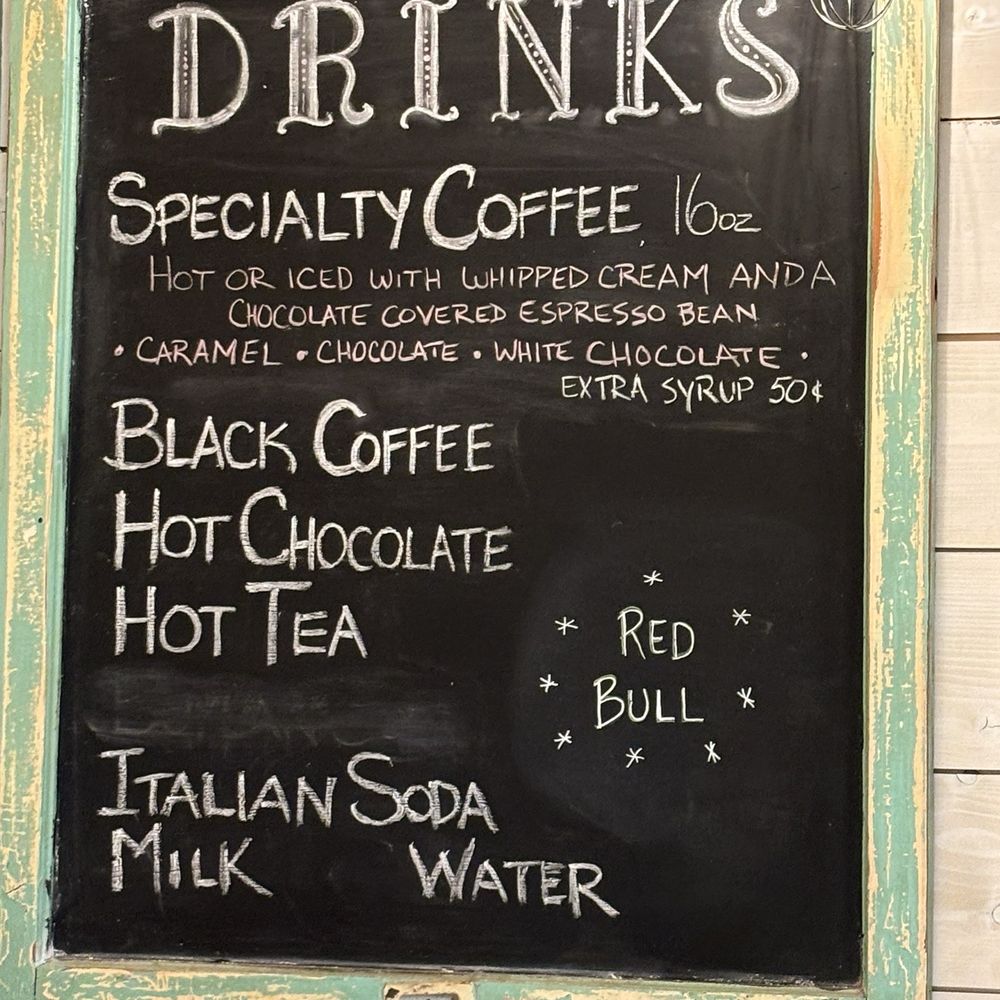 DRINKS
SPECIALTY COFFEE 16oz
HOT OR ICED WITH WHIPPED CREAM AND A
CHOCOLATE COVERED ESPRESSO BEAN
• CARAMEL • CHOCOLATE • WHITE CHOCOLATE •
EXTRA SYRUP 50¢
BLACK COFFEE
HOT CHOCOLATE
HOT TEA
RED
BULL
ITALIAN SODA
MILK WATER